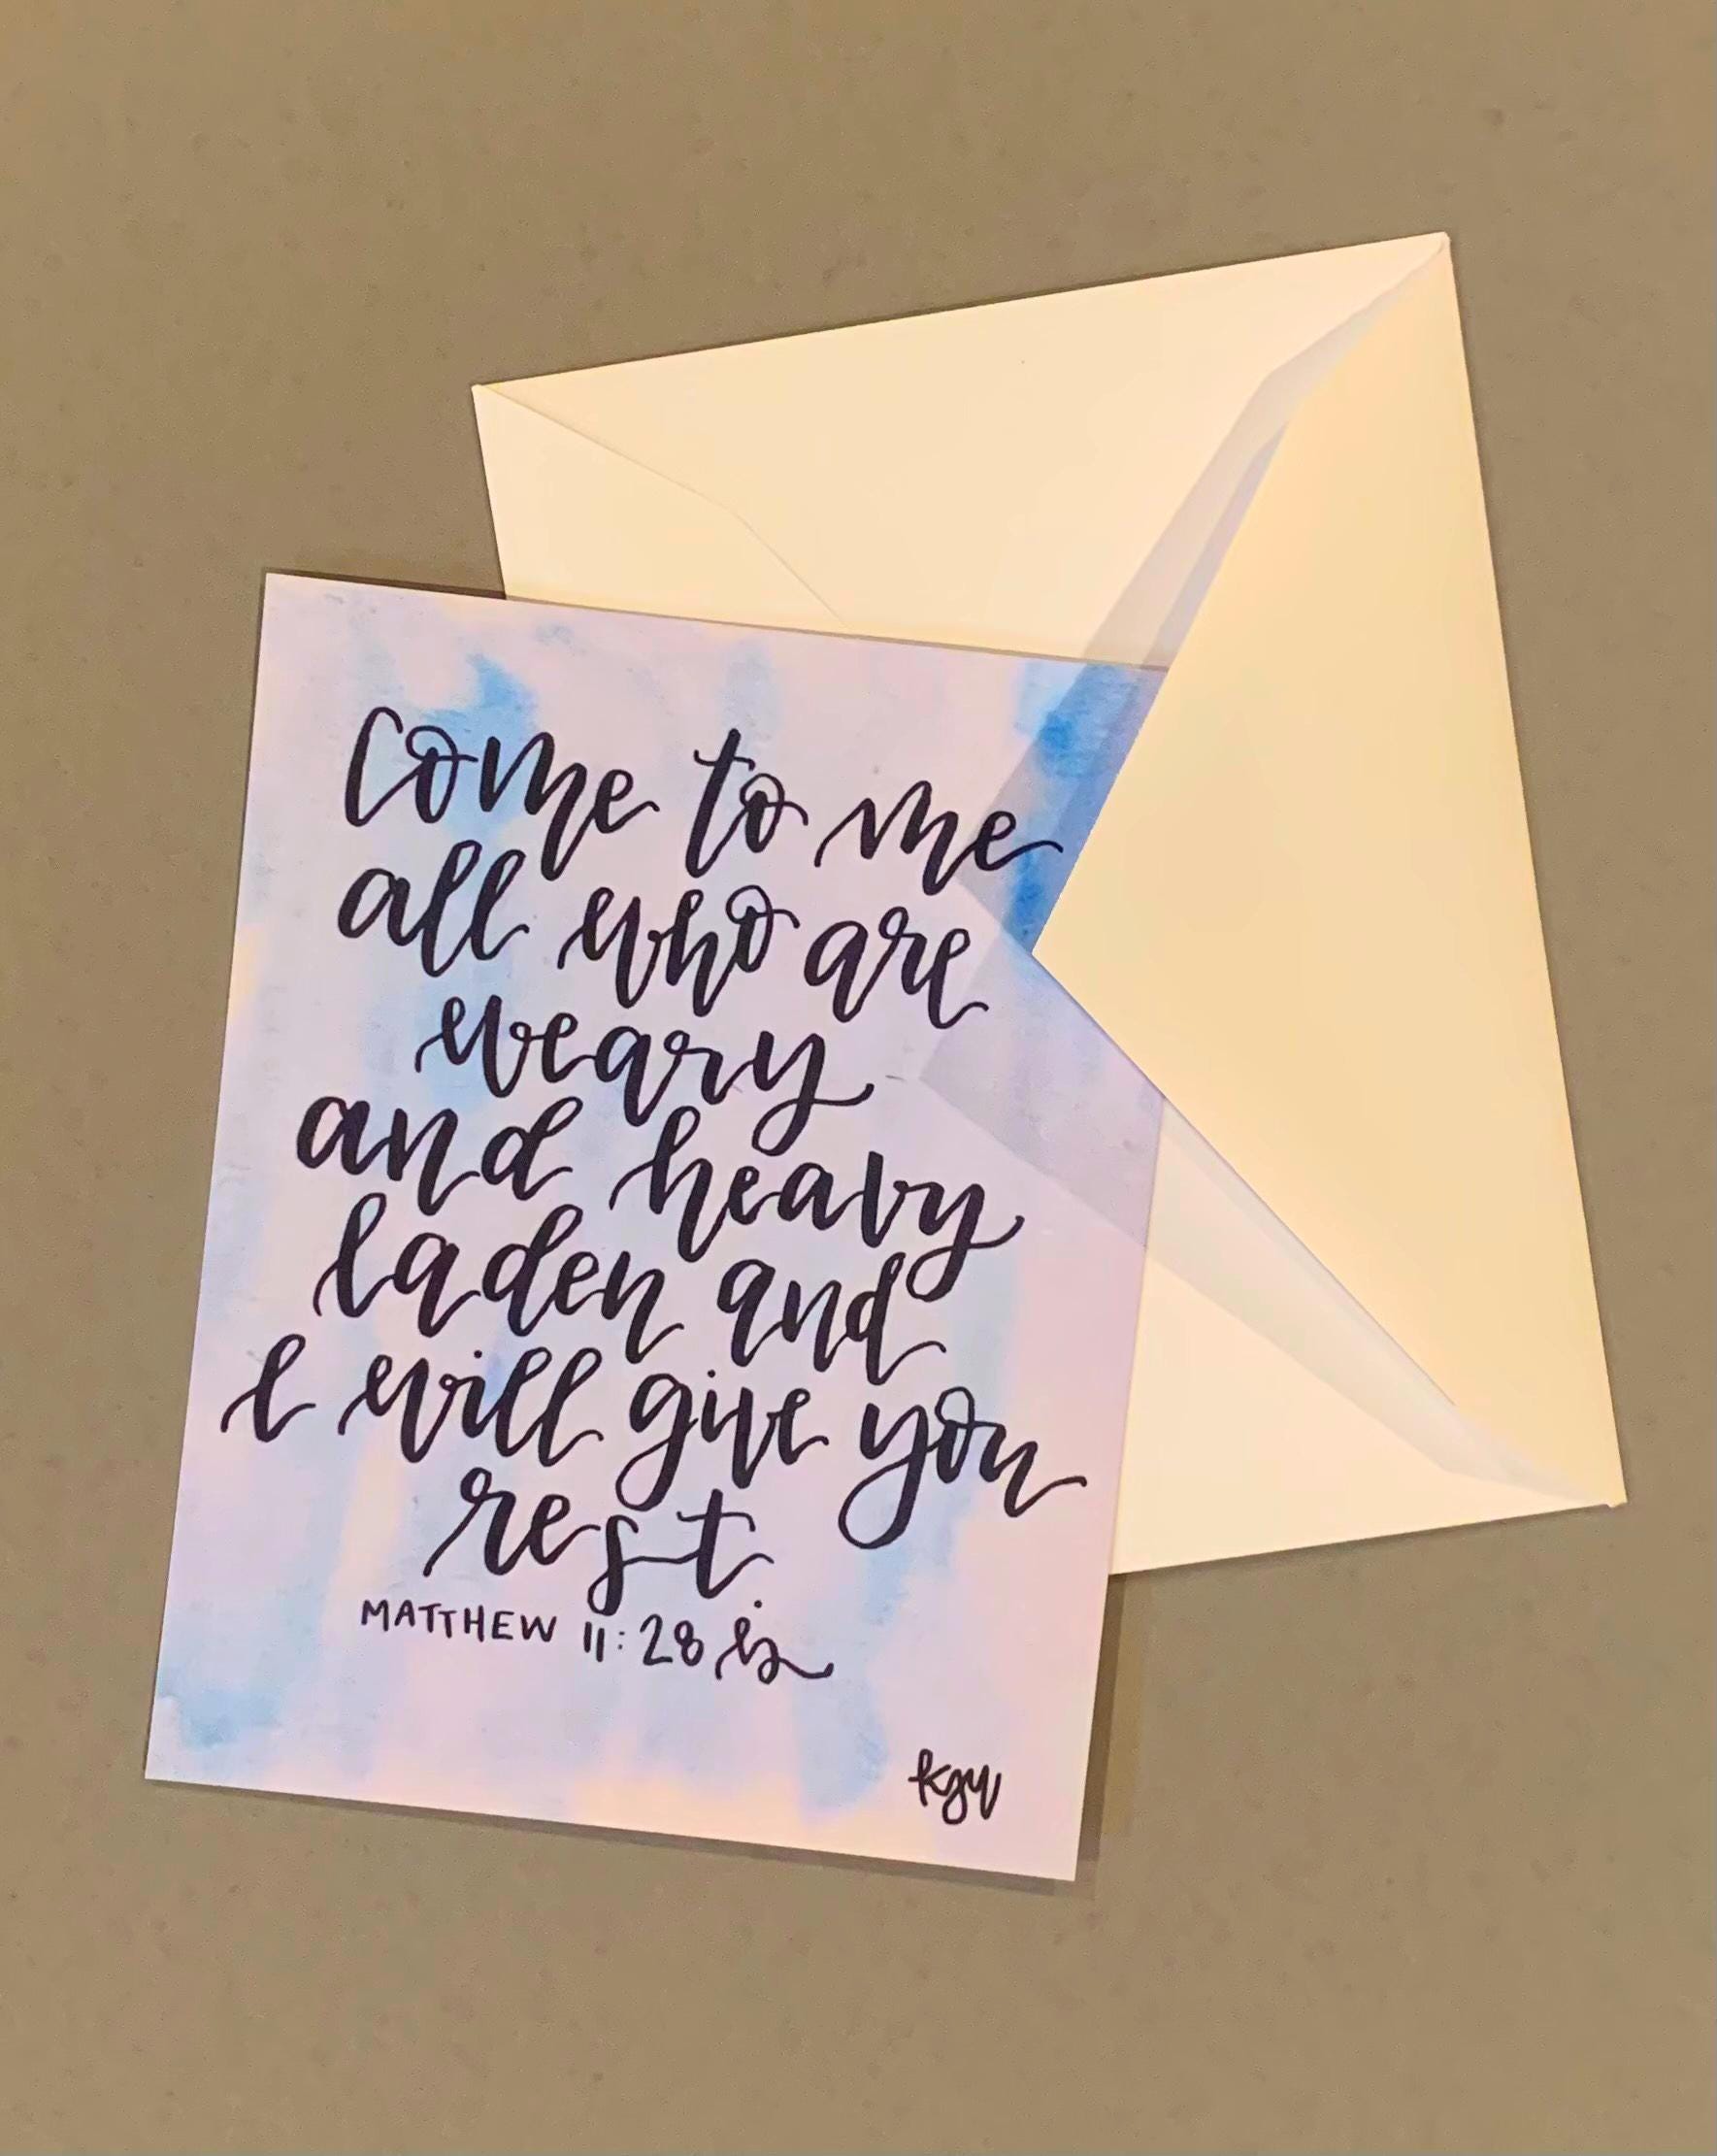 Come to me
all who are
weary
and heavy
laden and
I will give you
rest.
MATTHEW 11:28
kgw